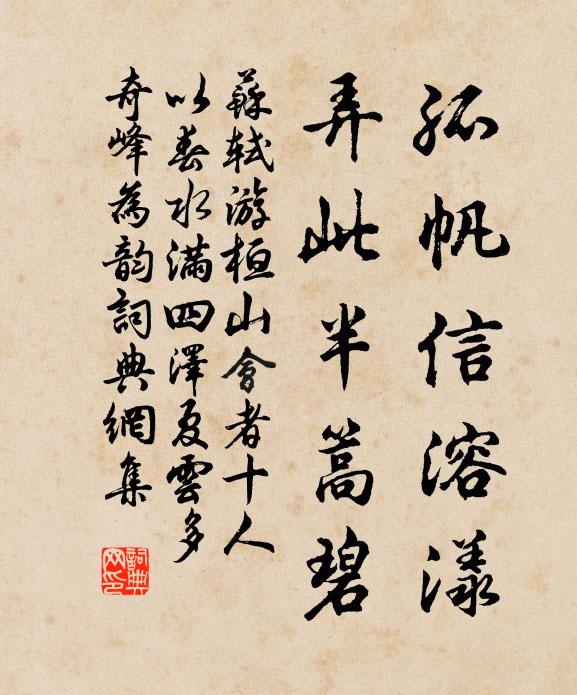 孤帆信溶漾
弄此半篙碧
蘇軾游桓山會者十人
以春水滿四澤夏雲多
奇峰為韵詞典網集
詞典网印